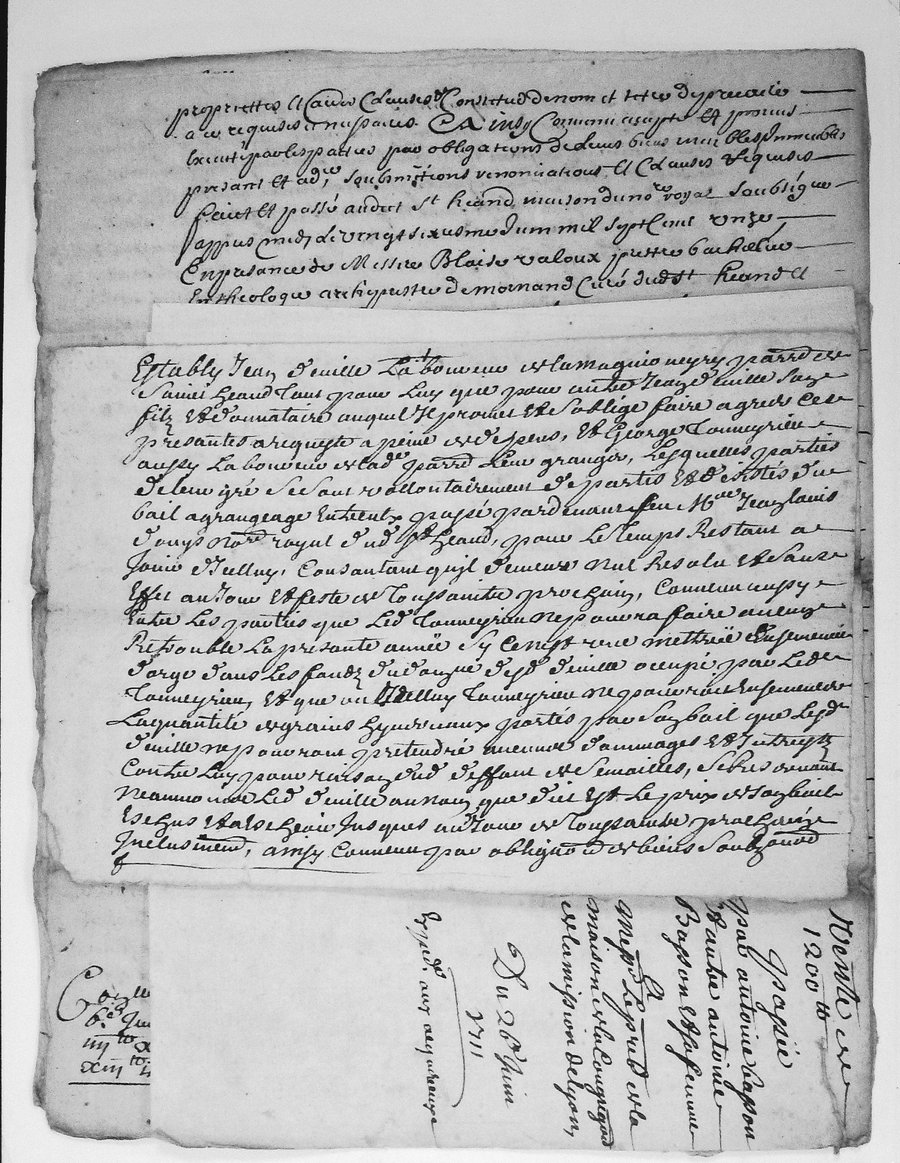 proprietté et autre Clauses Constitué de nom et tittre de precaire
a ce requises et necessaires. Ainsy Convenu accepté et promis
par les parties par obligations de leurs biens meubles immeubles
present et ad. soubmitions renonciations et Clauses requises
faict et passé audict St heand maison du no.re royal soubsigné
appres midy le vingt sixiesme Juin mil sept Cent unze
En presance de Messire Blaise valoux prestre bachelier
En theologie archiprestre de mornand Curé dudt St heand et
Estably Jean deville Laboureur de la magnioneyry parr.e de
Saint heand tant pour Luy que pour autre Jean deville Son
filz et donnataire auquel Il promet et s'oblige faire agreer Ces
presantes a requeste a peine de despens, et George Tonneyrieu
aussy Laboureur de lad. parr.e Leur granger, Lesquelles parties
de leur gré Se sont vollontairement departis et desistés du
bail a grangeage Entreux passé pardevant feu M.re Jean Louis
no.re royal dud. St heand, pour Le temps Restant a
Jouir d'Icelluy, Consantant qu'jl demeure nul Resolu et Sans
Effet au Jour et feste de Toussaintz prochain, Convenu aussy
Entre Les parties que Led. Tonneyrieu ne pourra faire aucune
Retrouble La presante année Sy Ce n'est une mettrée d'ensemencée
d'orge dans Les fondz du domayne desd. deville occupé par Led.
Tonneyrieu, et que ou Icelluy Tonneyrieu ne pourroit Ensemencer
La quantité de grains hyvernaux portés par Son bail que Lesd.
deville ne pourront pretendre aucuns dommages et Interestz
Contre Luy pour raison dud. deffaut de Semailles, Se Reservant
neanmoins Led. deville au nom que dict est Le prix de Son bail
Escheus et a Escheoir Jusques au Jour de Toussaintz prochain
Inclusivem.t, ainsy Convenu par oblignaõn de biens Soub
Vente de
1200 tt
passée
par antoine basson
et autre antoine
Basson et sa femme
a
Mess.rs Les pred. de la
maison de la Congregaõn
de la mission de Lyon,
Du 26e Juin
1711
Exped. aux acquereurs